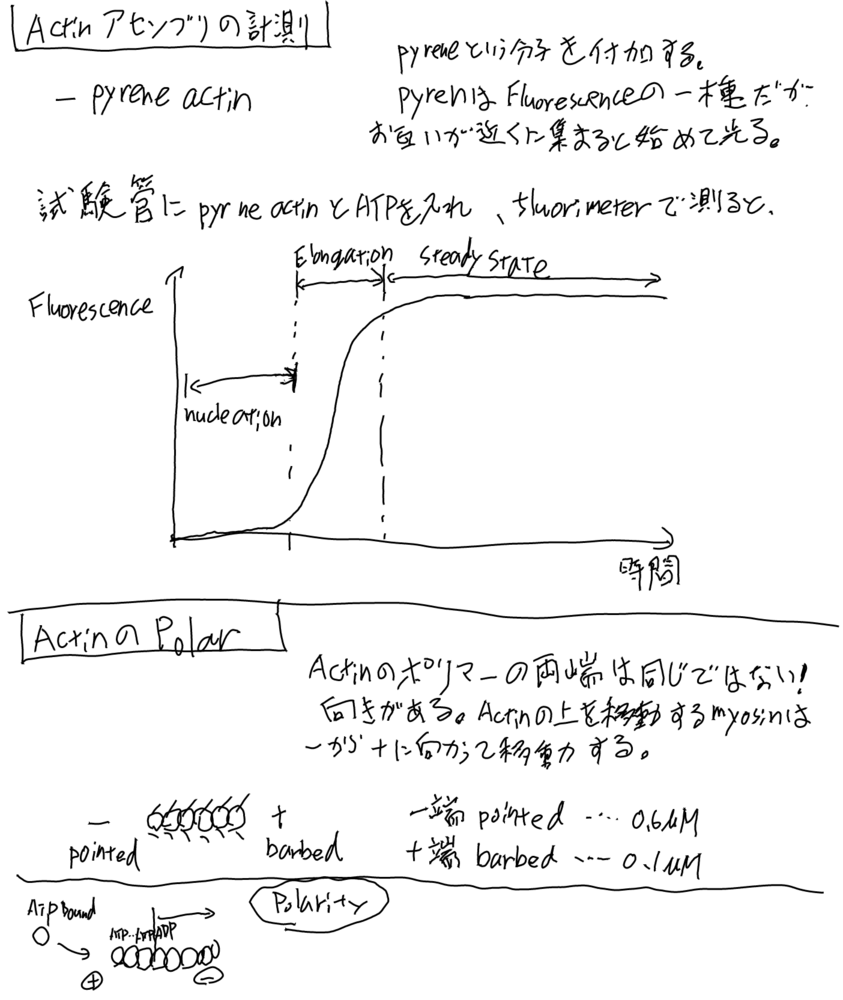 Actin アセンブリの計測
– pyrene actin
pyreneという分子を付加する。
pyrenはFluorescenceの一種だが、
お互いが近くに集まると始めて光る。
試験管にpyrne actinとATPを入れ、fluorimeterで測ると、
Elongation
steady state
Fluorescence
nucleation
時間
ActinのPolar
Actinのポリマーの両端は同じではない!
向きがある。Actinの上を移動するmyosinは
-から+に向かって移動する。
- +
pointed barbed
-端 pointed ... 0.6μM
+端 barbed ... 0.1μM
Polarity
ATP Bound
ATP... ATP ADP
+ -